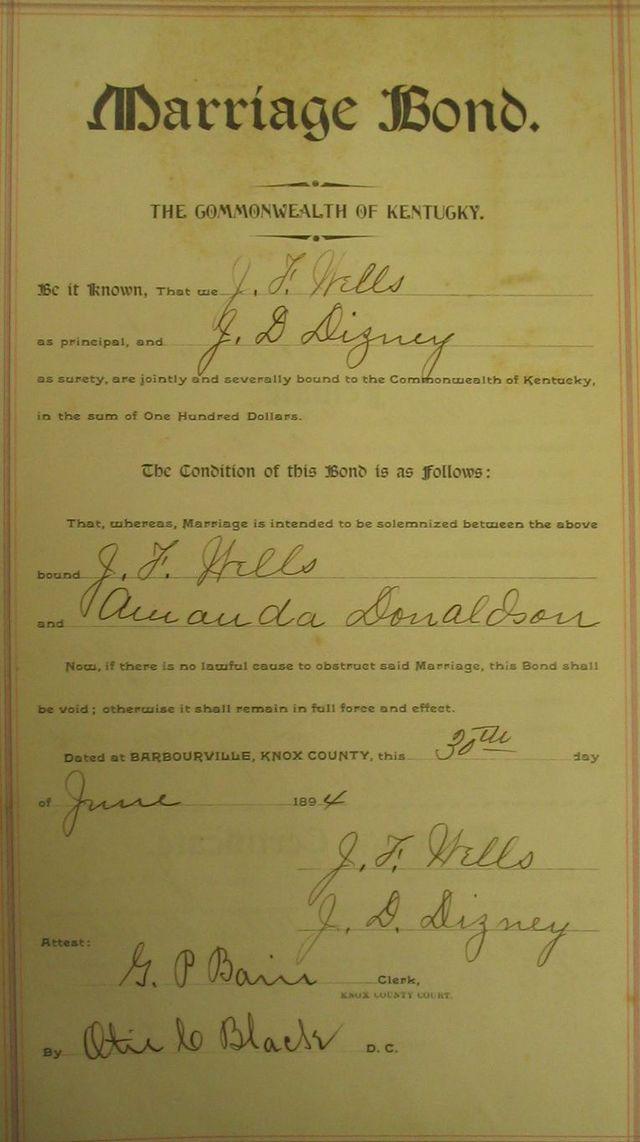 Marriage Bond.
THE COMMONWEALTH OF KENTUCKY.
Be it known, That we J. F. Wells
as principal, and J. D Dizney
as surety, are jointly and severally bound to the Commonwealth of Kentucky,
in the sum of One Hundred Dollars.
The Condition of this Bond is as Follows:
That, whereas, Marriage is intended to be solemnized between the above
bound J. F. Wells
and Amanda Donaldson
Now, if there is no lawful cause to obstruct said Marriage, this Bond shall
be void; otherwise it shall remain in full force and effect.
Dated at BARBOURVILLE, KNOX COUNTY, this 30th day
of June 1894
J. F. Wells
J. D. Dizney
Attest:
G. P Bain Clerk,
KNOX COUNTY COURT.
By Otie C Black D. C.